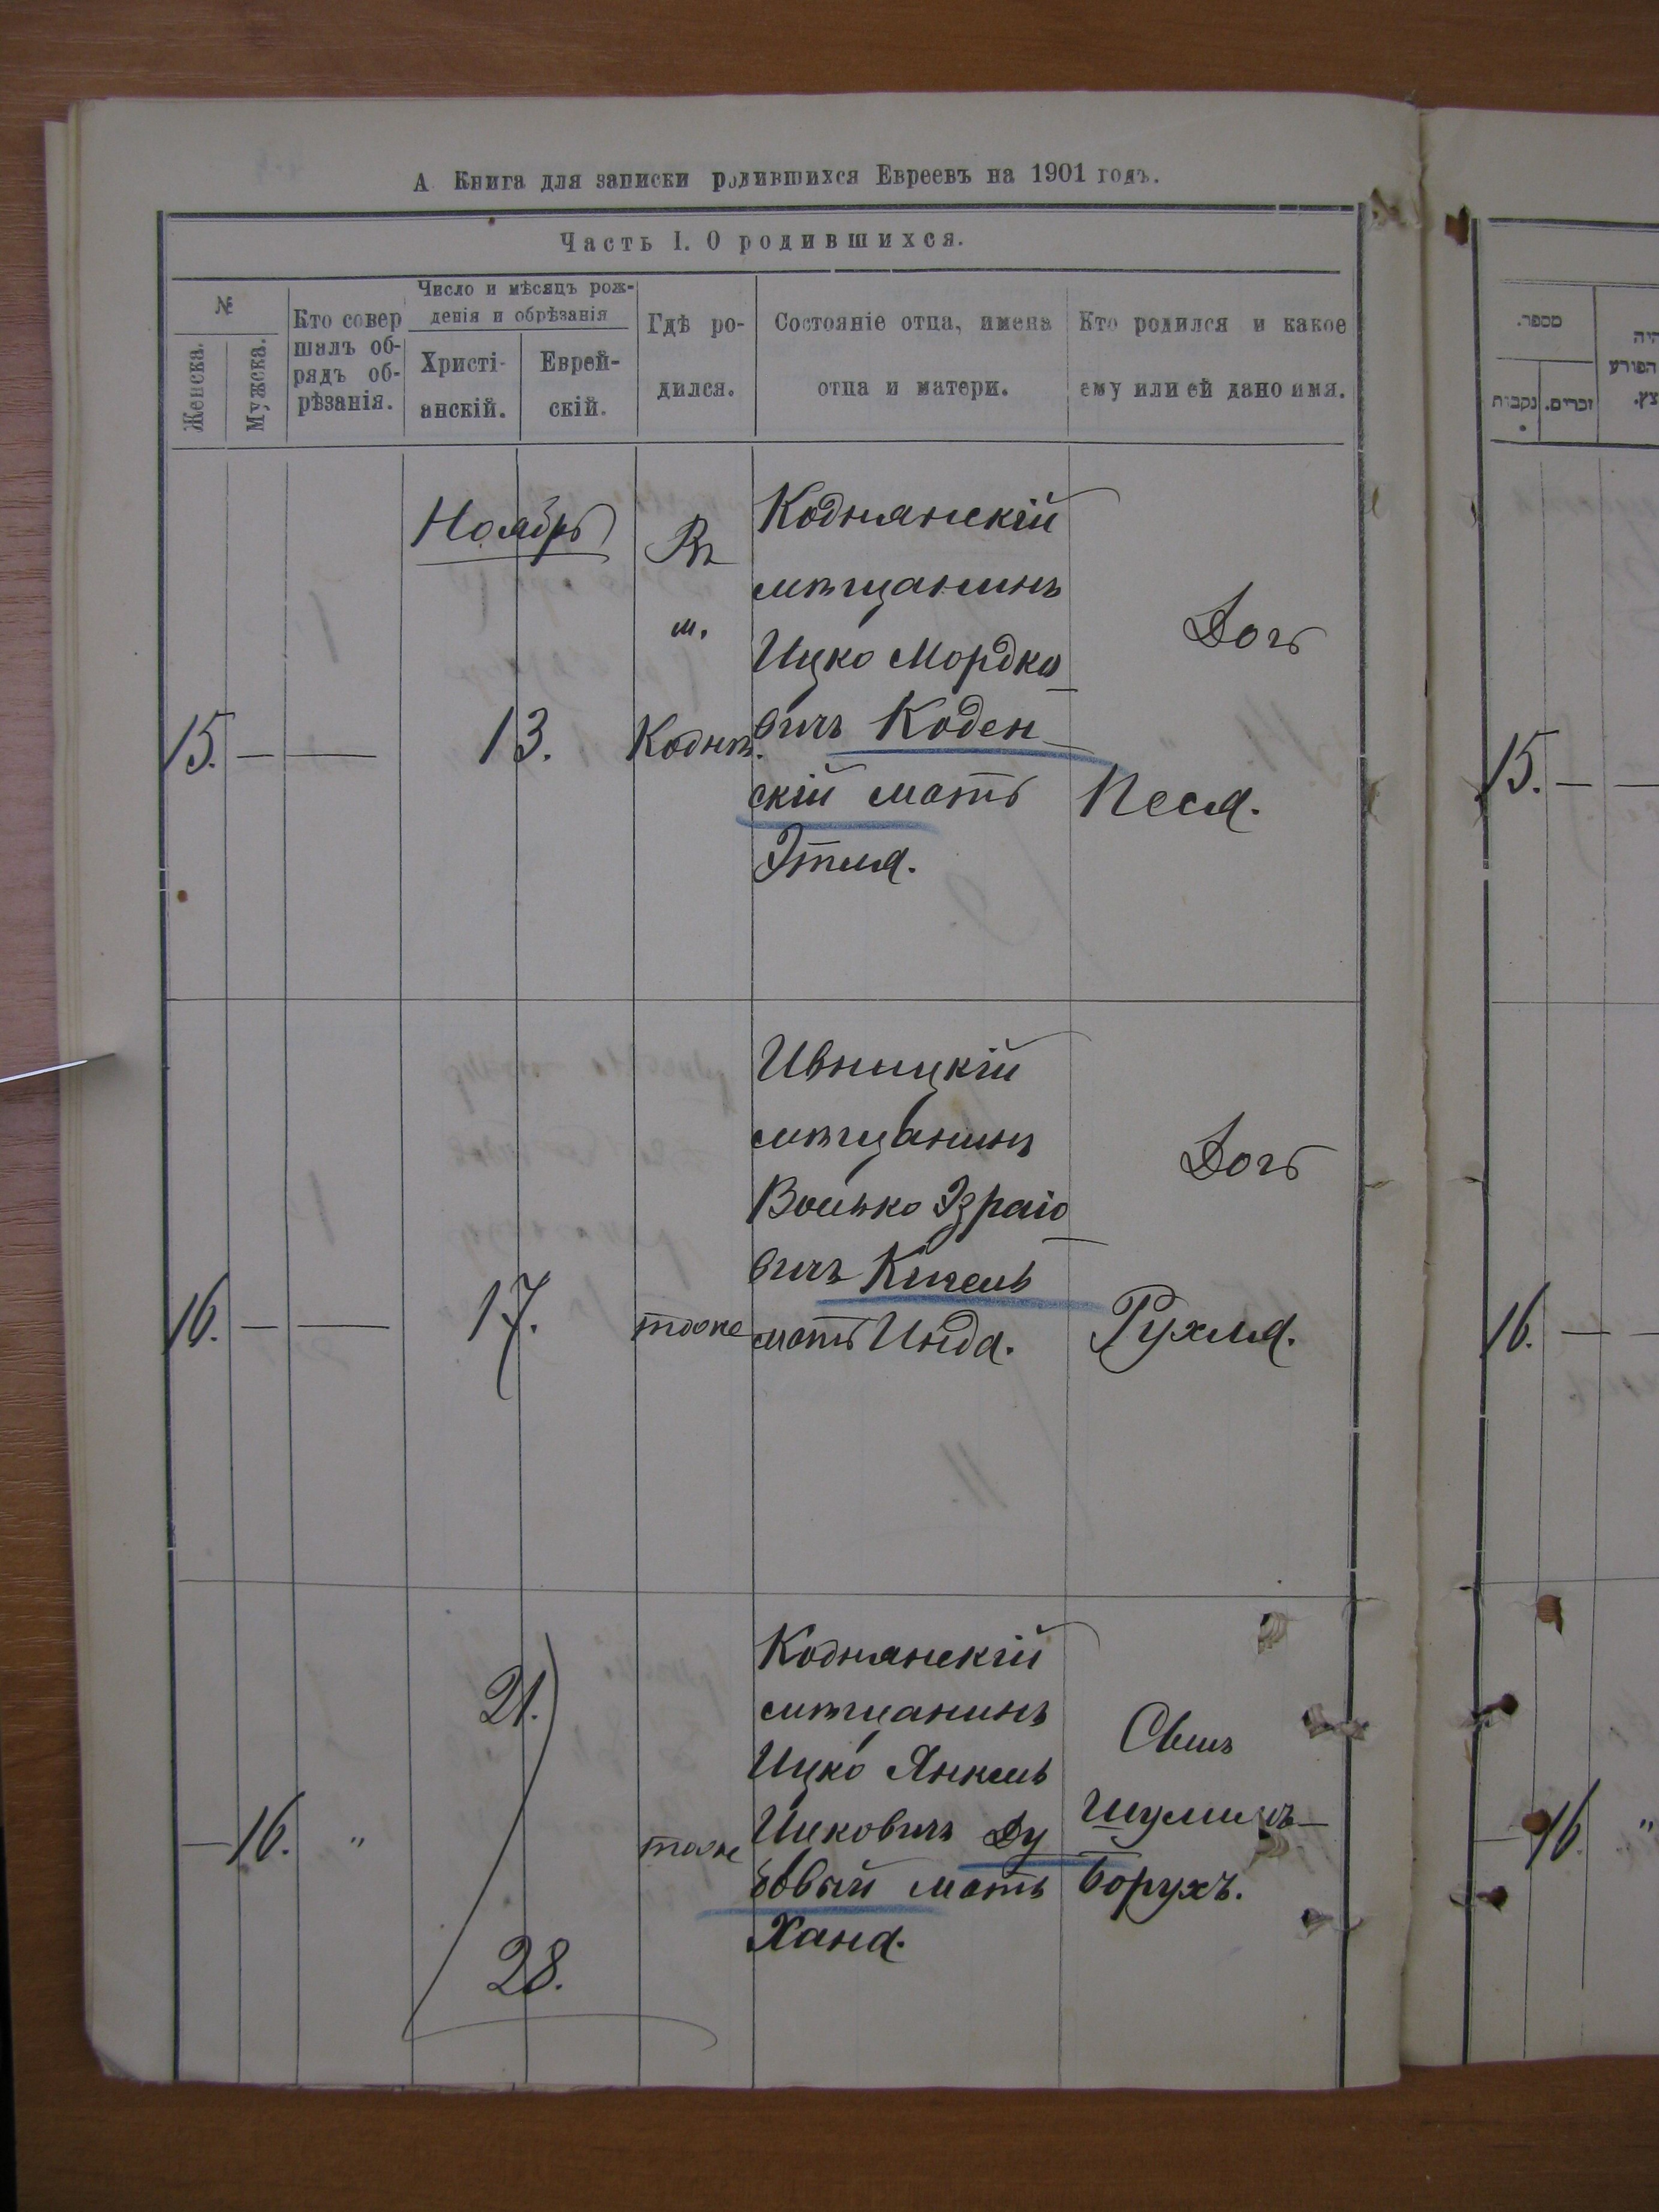 А Книга для записки родившихся Евреевъ на 1901 годъ.
Часть I. О родившихся.
№
Женска.
Мужска.
Кто совер
шалъ об-
рядъ об-
рѣзанія.
Число и мѣсяцъ рож-
денія и обрѣзанія
Христі-
анскій.
Еврей-
скій.
Гдѣ ро-
дился.
Состояніе отца, имена
отца и матери.
Кто родился и какое
ему или ей дано имя.
15. — —
Ноябрь
13.
Въ
м.
Коднѣ.
Коднянскій
мѣщанинъ
Ицко Мордко
вичъ Коден
скій мать
Этля.
Дочь
Песя.
16. — —
17.
тоже
Ивницкій
мѣщанинъ
Волько Эзраіо
вичъ Кигель
мать Инда.
Дочь
Рухля.
— 16. "
21.
28.
тоже
Коднянскій
мѣщанинъ
Ицко Янкель
Ицковичъ Ду
бовый мать
Хана.
Сынъ
Шулимъ—
Борухъ.
מספר.
נקבות
זכרים.
היה
הפורע
15. — —
16. — —
— 16 "